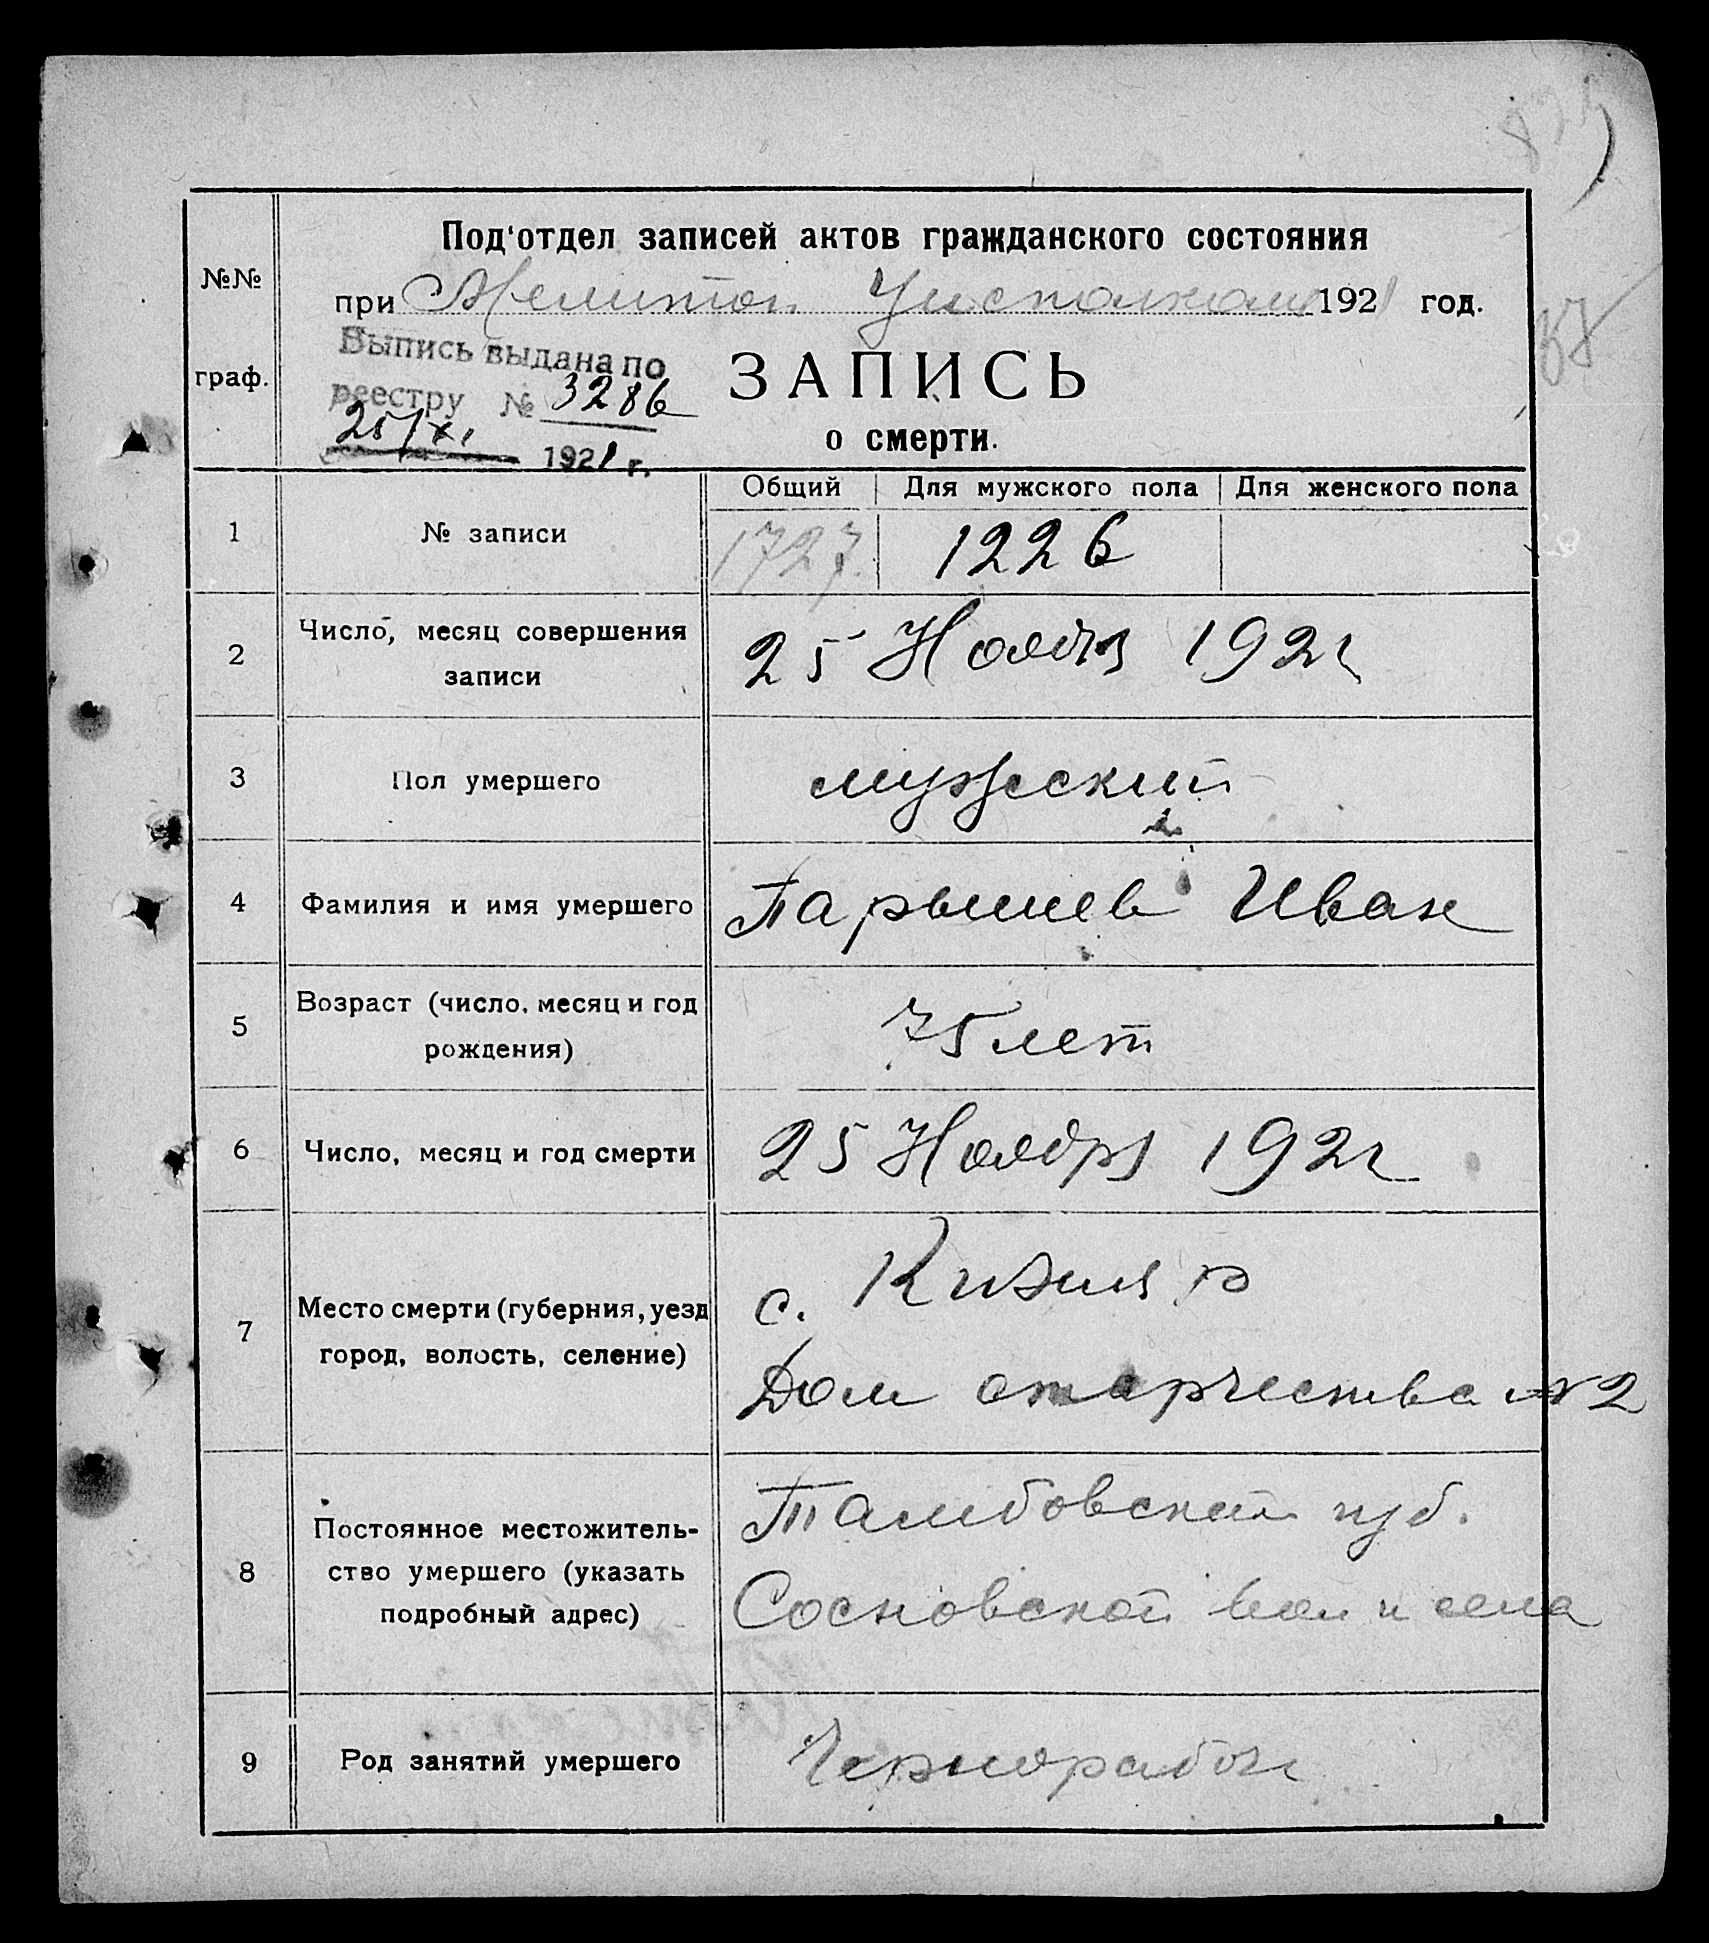 №№
граф.
Под'отдел записей актов гражданского состояния
при Мелитоп. Уисполкоме 1921 год.
Выпись выдана по
реестру № 3286
25/XI 1921 г.
ЗАПИСЬ
о смерти.
Общий Для мужского пола Для женского пола
1 № записи 1727 1226
2 Число, месяц совершения
записи
25 Ноября 1921
3 Пол умершего мужеский
4 Фамилия и имя умершего Парышев Иван
5 Возраст (число, месяц и год
рождения)
75 лет
6 Число, месяц и год смерти 25 Ноября 1921
7 Место смерти (губерния, уезд
город, волость, селение)
с. Кизияр
Дом старчества № 2
8 Постоянное местожитель-
ство умершего (указать
подробный адрес)
Тамбовской губ.
Сосновской вол и села
9 Род занятий умершего Чернорабоч